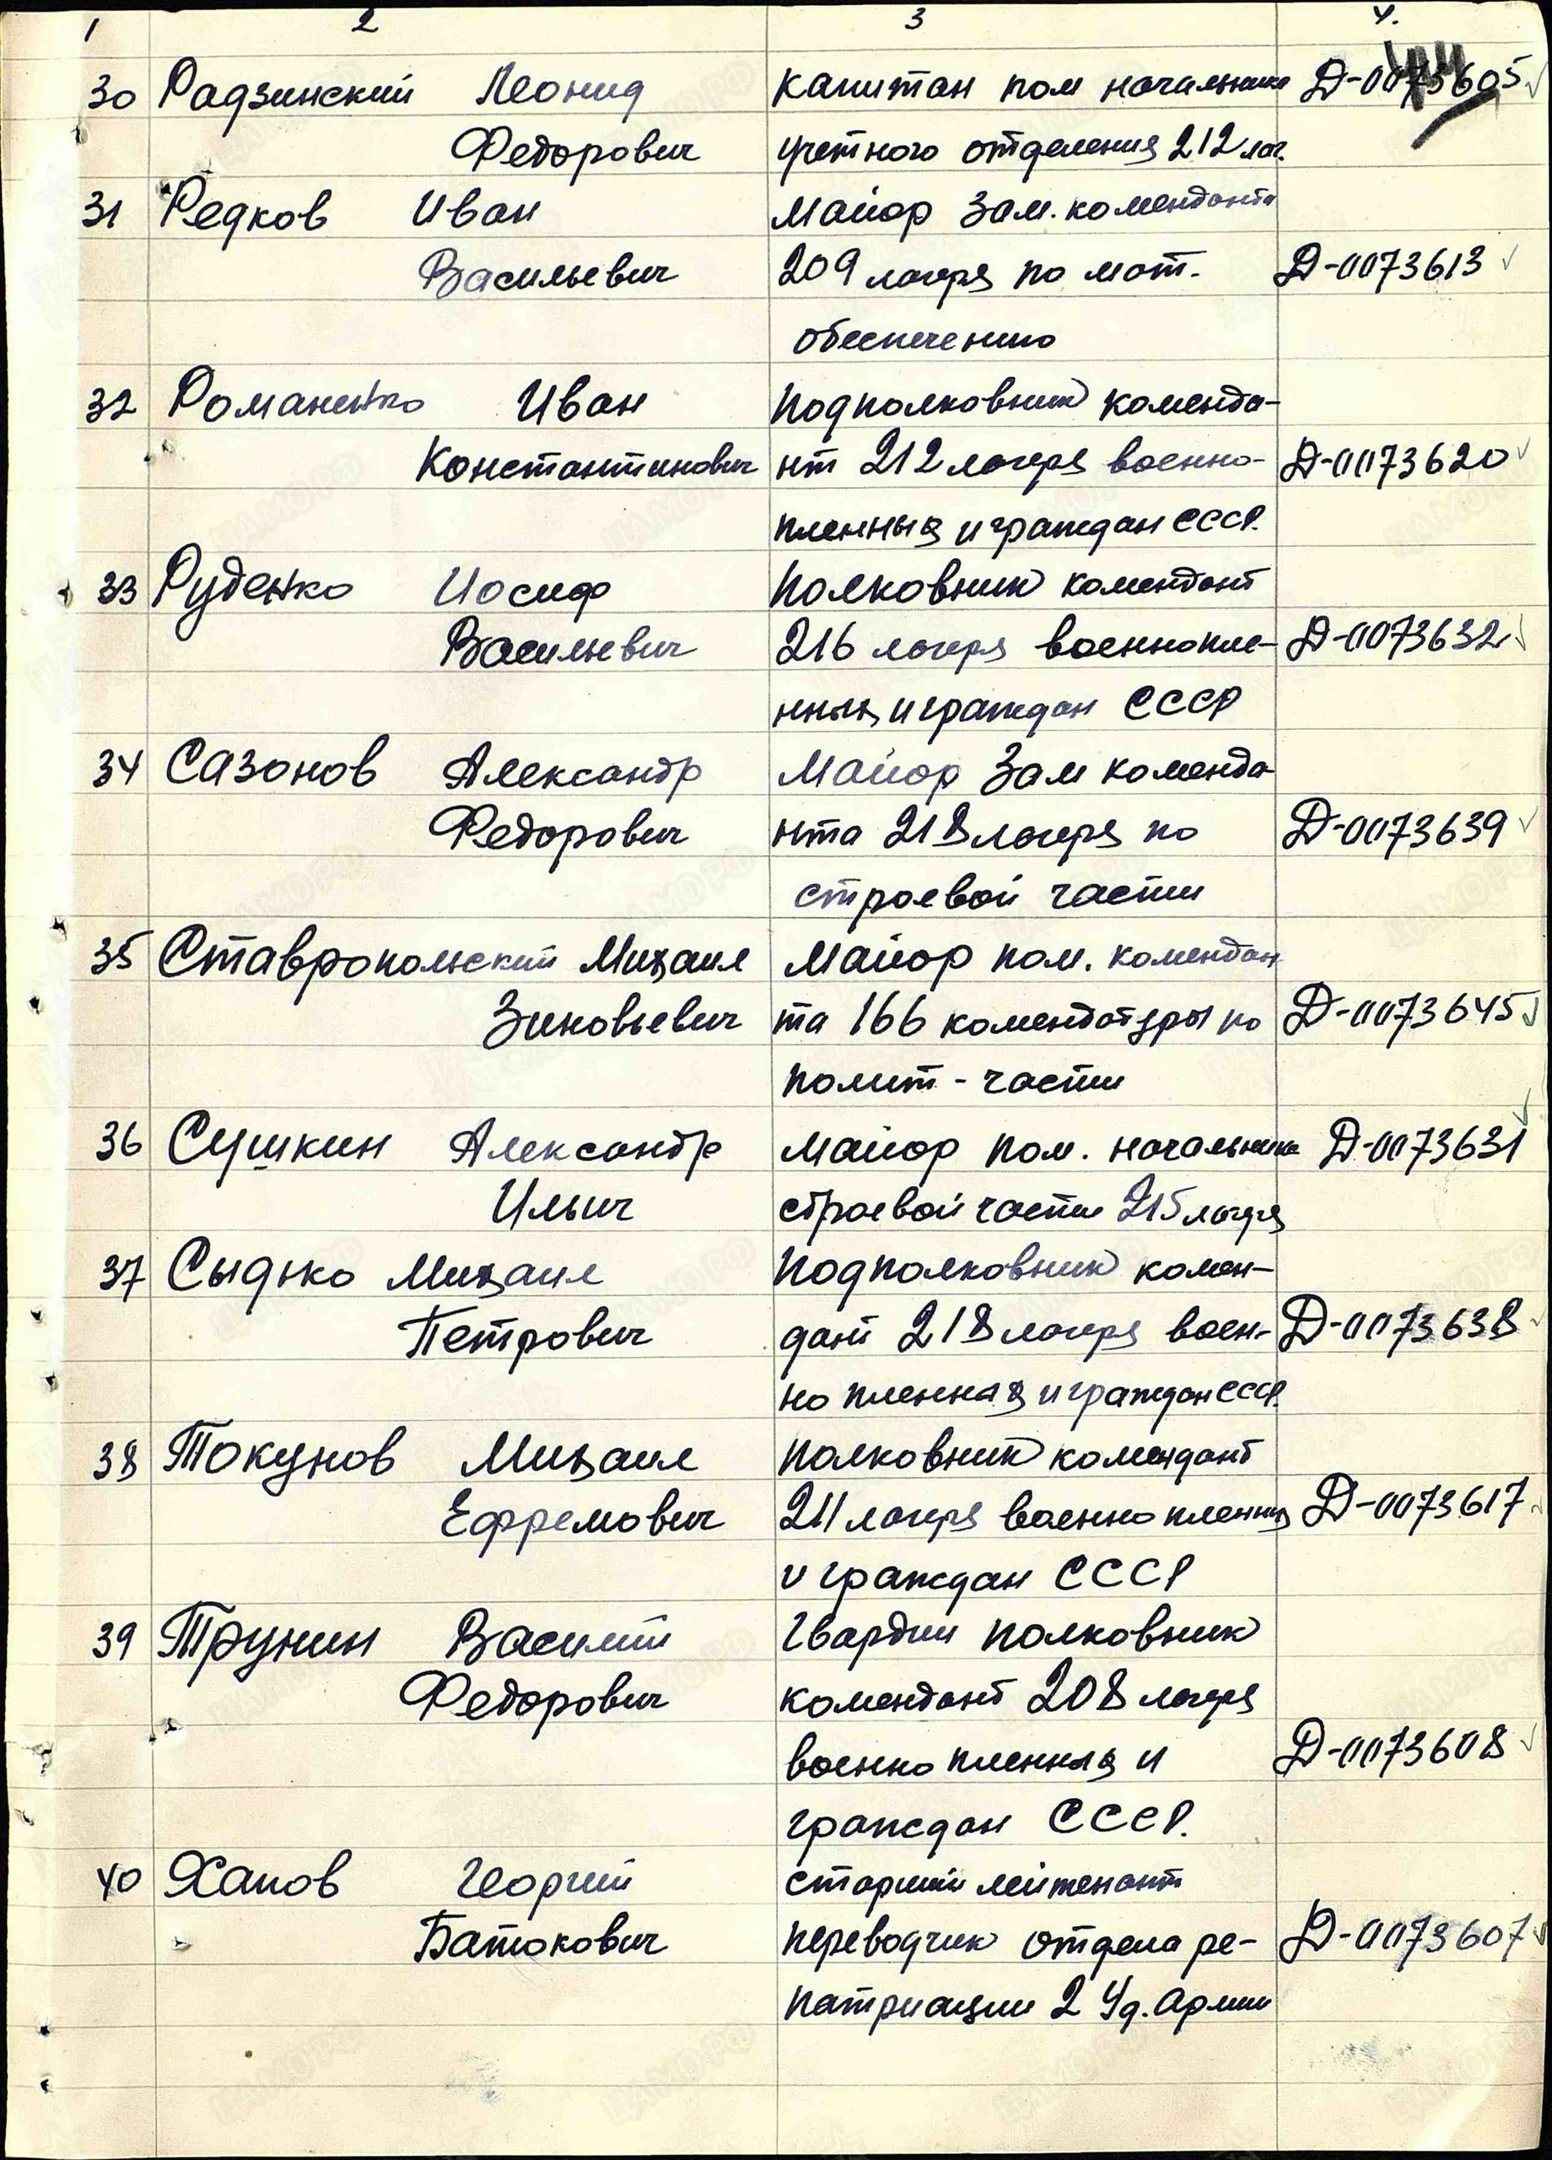 1 2 3 4.
30 Радзинский Леонид капитан пом начальника Д-0073605
Федорович учетного отделения 212 лаг.
31 Редков Иван Майор Зам. коменданта
Васильевич 209 лагеря по мат. Д-0073613
обеспечению
32 Романенко Иван Подполковник коменда-
Константинович нт 212 лагеря военно- Д-0073620
пленных и граждан СССР.
33 Руденко Иосиф Полковник комендант
Васильевич 216 лагеря военнопле- Д-0073632
нных и граждан СССР
34 Сазонов Александр Майор Зам коменда
Федорович нта 218 лагеря по Д-0073639
строевой части
35 Ставропольский Михаил Майор пом. комендан
Зиновьевич та 166 комендатуры по Д-0073645
полит-части
36 Сушкин Александр майор пом. начальника Д-0073631
Ильич строевой части 215 лагеря
37 Сыдько Михаил Подполковник комен-
Петрович дант 218 лагеря воен- Д-0073638
но пленных и граждан СССР.
38 Токунов Михаил полковник комендант
Ефремович 211 лагеря военно пленных Д-0073617
и граждан СССР
39 Трунин Василий Гвардии полковник
Федорович комендант 208 лагеря
военно пленных и Д-0073608
граждан СССР.
40 Хапов Георгий старший лейтенант
Батокович переводчик отдела ре- Д-0073607
патриации 2 Уд. Армии